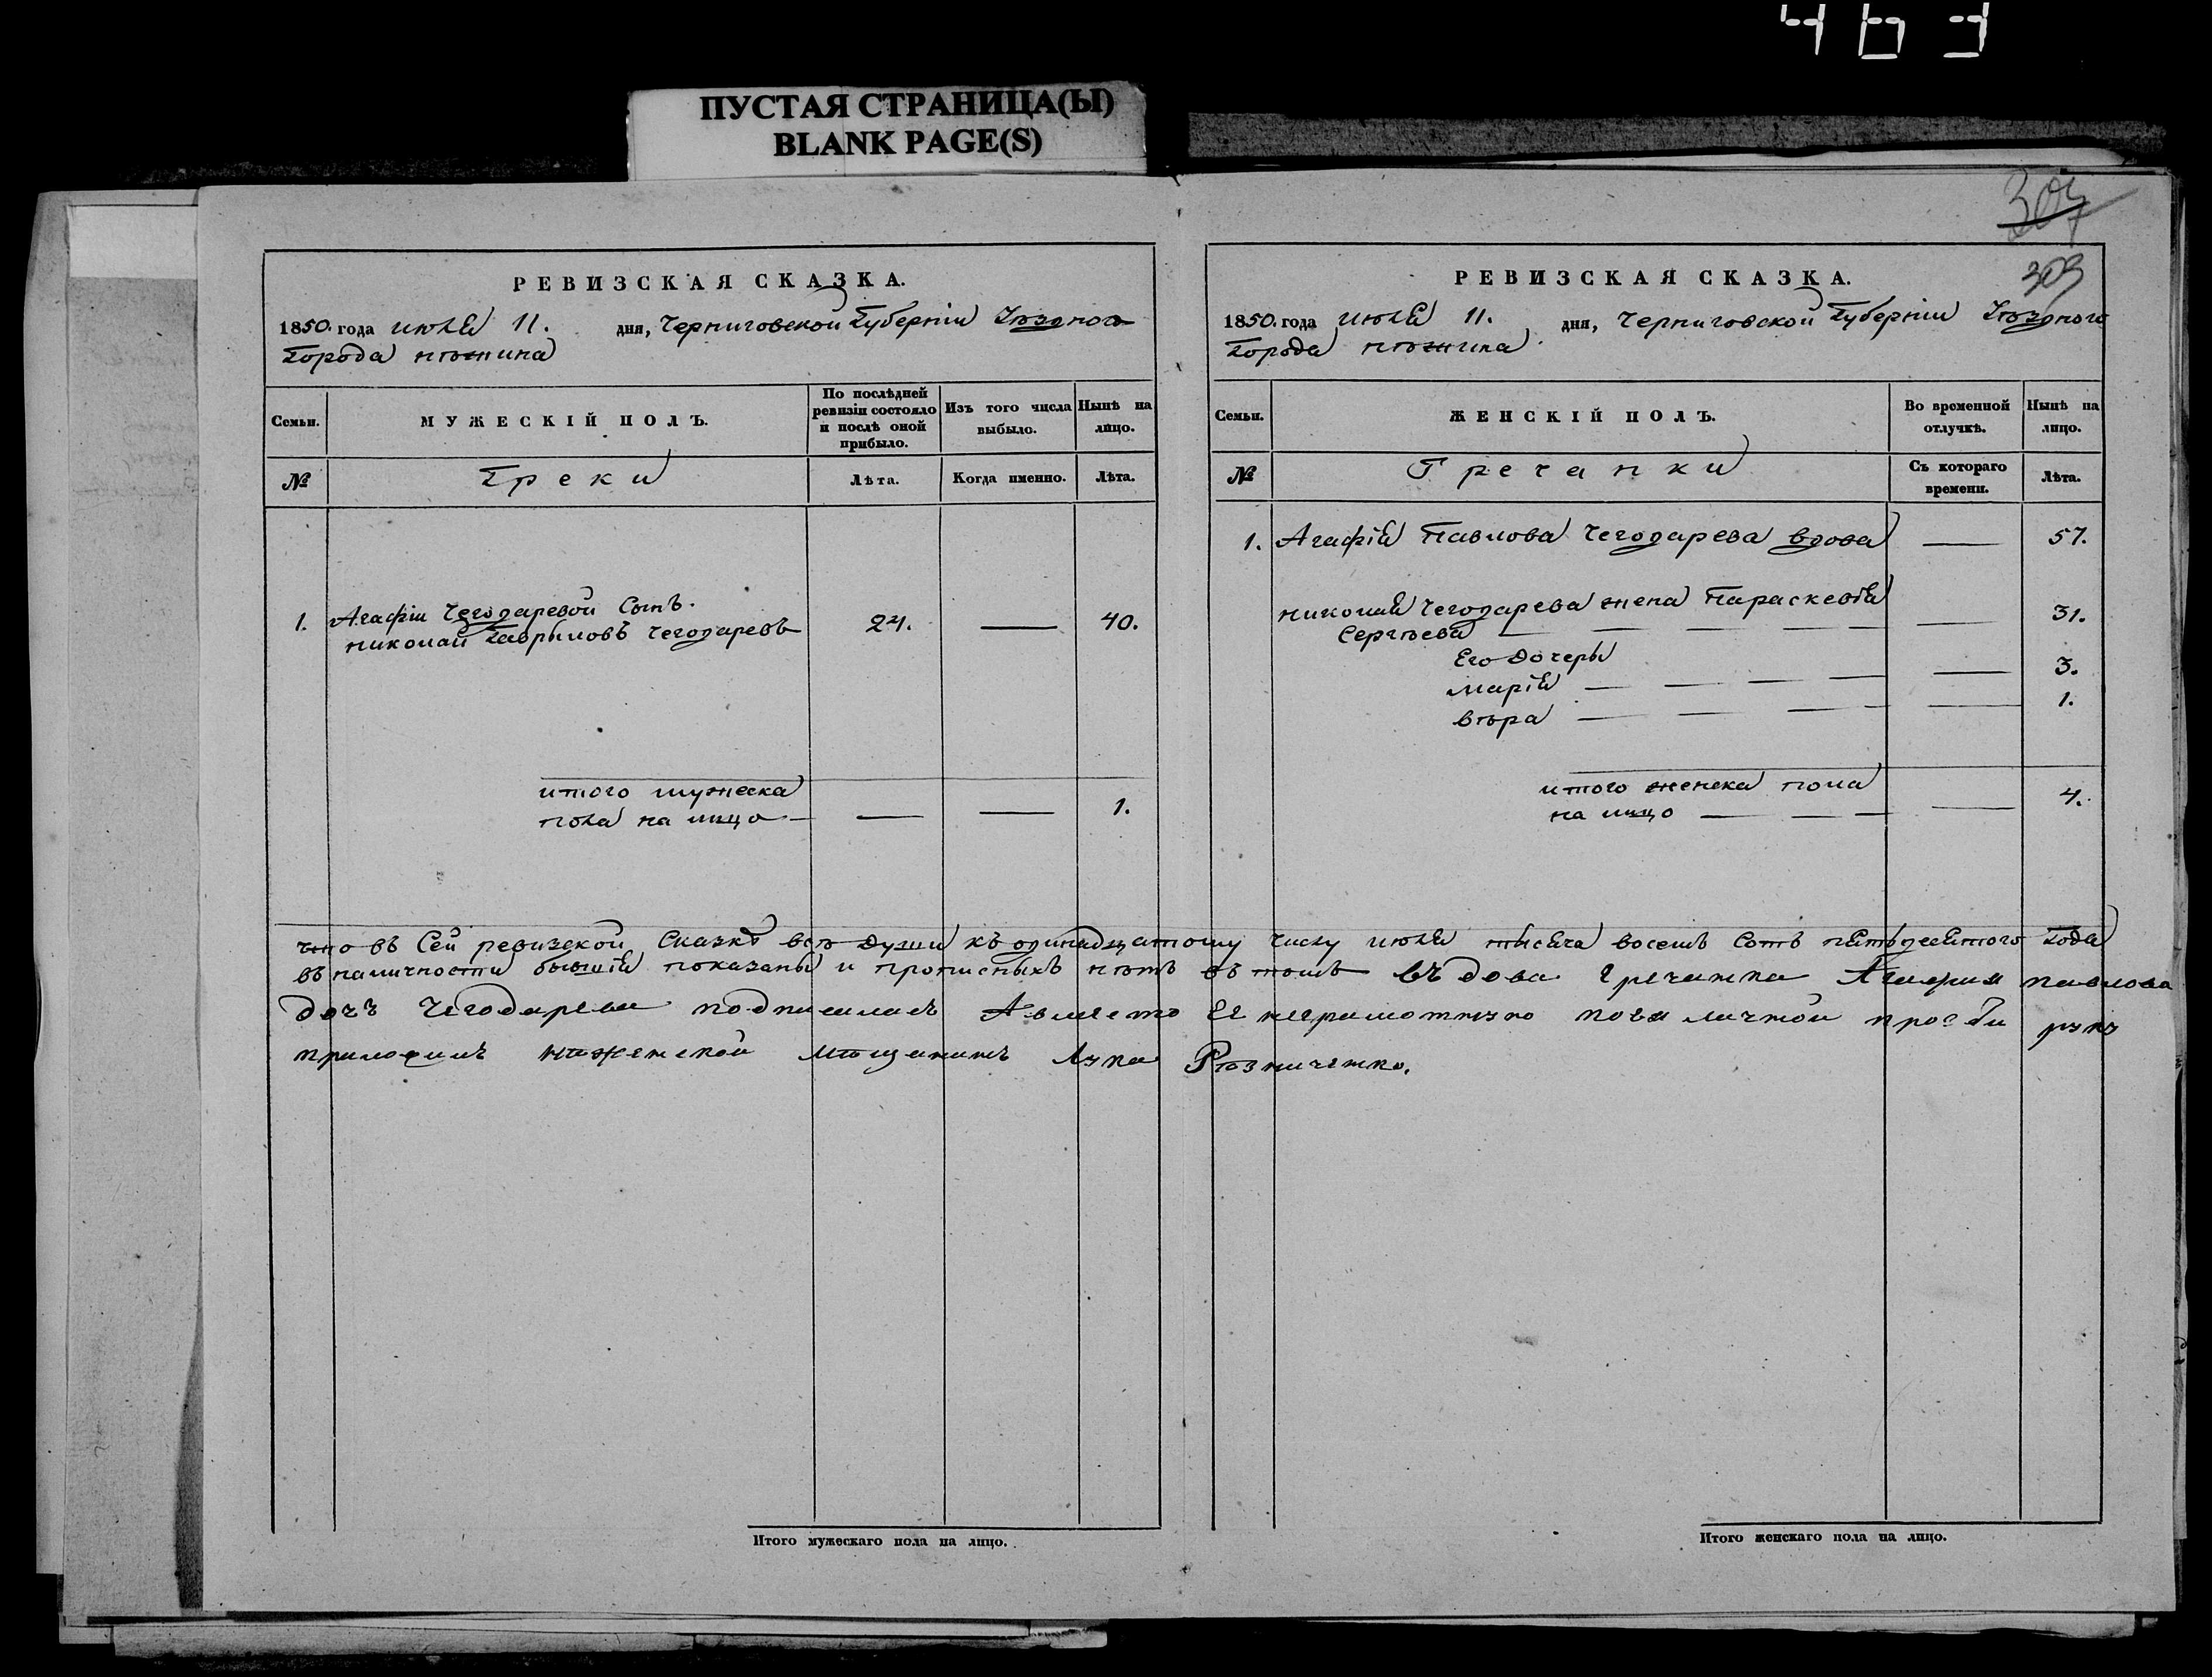 ПУСТАЯ СТРАНИЦА(Ы)
BLANK PAGE(S)
307
РЕВИЗСКАЯ СКАЗКА.
1850. года июля 11. дня, Черниговской Губерніи Уѣздного
Города нѣжина
Семьи.
МУЖЕСКІЙ ПОЛЪ.
По послѣдней ревизіи состояло и послѣ оной прибыло.
Изъ того числа выбыло.
Нынѣ на лицо.
№
Греки
Лѣта.
Когда именно.
Лѣта.
1. Агафіи Чегодаревой Сынъ.
николай Гавриловъ Чегодаревъ 24. — 40.
итого мужеска
пола на лицо — — — 1.
309
РЕВИЗСКАЯ СКАЗКА.
1850. года июля 11. дня, Черниговской Губерніи Уѣздного
Города нѣжина
Семьи.
ЖЕНСКІЙ ПОЛЪ.
Во временной отлучкѣ.
Нынѣ на лицо.
№
Гречанки
Съ котораго времени.
Лѣта.
1. Агафія Павлова Чегодарева вдова — 57.
николая Чегодарева жена Параскевія
Сергѣева — — — — — — 31.
Его дочеры
марія — — — — — 3.
вѣра — — — — — 1.
итого женска пола
на лицо — — — — 4.
что въ Сей ревизской Сказкѣ всѣ души къ одинадцатому числу июля тысяча восемъ Сотъ пятьдесятого Года
въ наличности бывшія показаны и прописныхъ нѣтъ въ томъ въдова Гречанка Агафия павлова
дочъ Чегодарева подписалась А вместо Ее неграмотную по Ея личной прозби руку
приложилъ нѣженской мѣщанинъ Лука Рѣзниченко.
Итого мужескаго пола на лицо.
Итого женскаго пола на лицо.